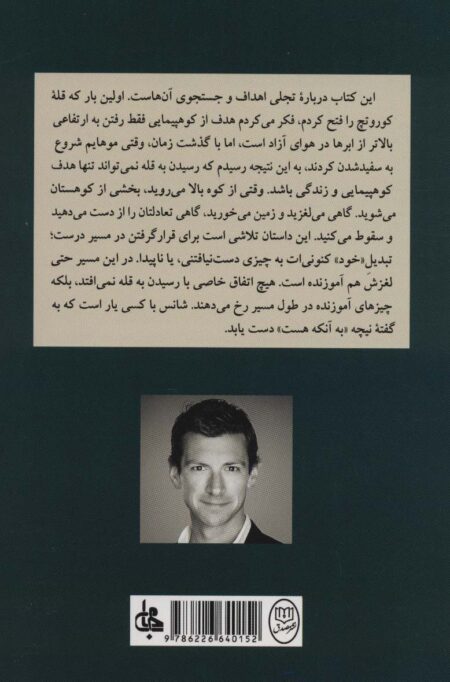 این کتاب دربارهٔ تجلی اهداف و جستجوی آن‌هاست. اولین بار که قلهٔ
کوروتچ را فتح کردم، فکر می‌کردم هدف از کوهپیمایی فقط رفتن به ارتفاعی
بالاتر از ابرها در هوای آزاد است، اما با گذشت زمان، وقتی موهایم شروع
به سفیدشدن کردند، به این نتیجه رسیدم که رسیدن به قله نمی‌تواند تنها هدف
کوهپیمایی و زندگی باشد. وقتی از کوه بالا می‌روید، بخشی از کوهستان
می‌شوید. گاهی می‌لغزید و زمین می‌خورید، گاهی تعادلتان را از دست می‌دهید
و سقوط می‌کنید. این داستان تلاشی است برای قرارگرفتن در مسیر درست؛
تبدیلِ «خود» کنونی‌ات به چیزی دست‌نیافتنی، یا ناپیدا. در این مسیر حتی
لغزش هم آموزنده است. هیچ اتفاق خاصی با رسیدن به قله نمی‌افتد، بلکه
چیزهای آموزنده در طول مسیر رخ می‌دهند. شانس با کسی یار است که به
گفتهٔ نیچه «به آنکه هست» دست یابد.
9 786226 640152